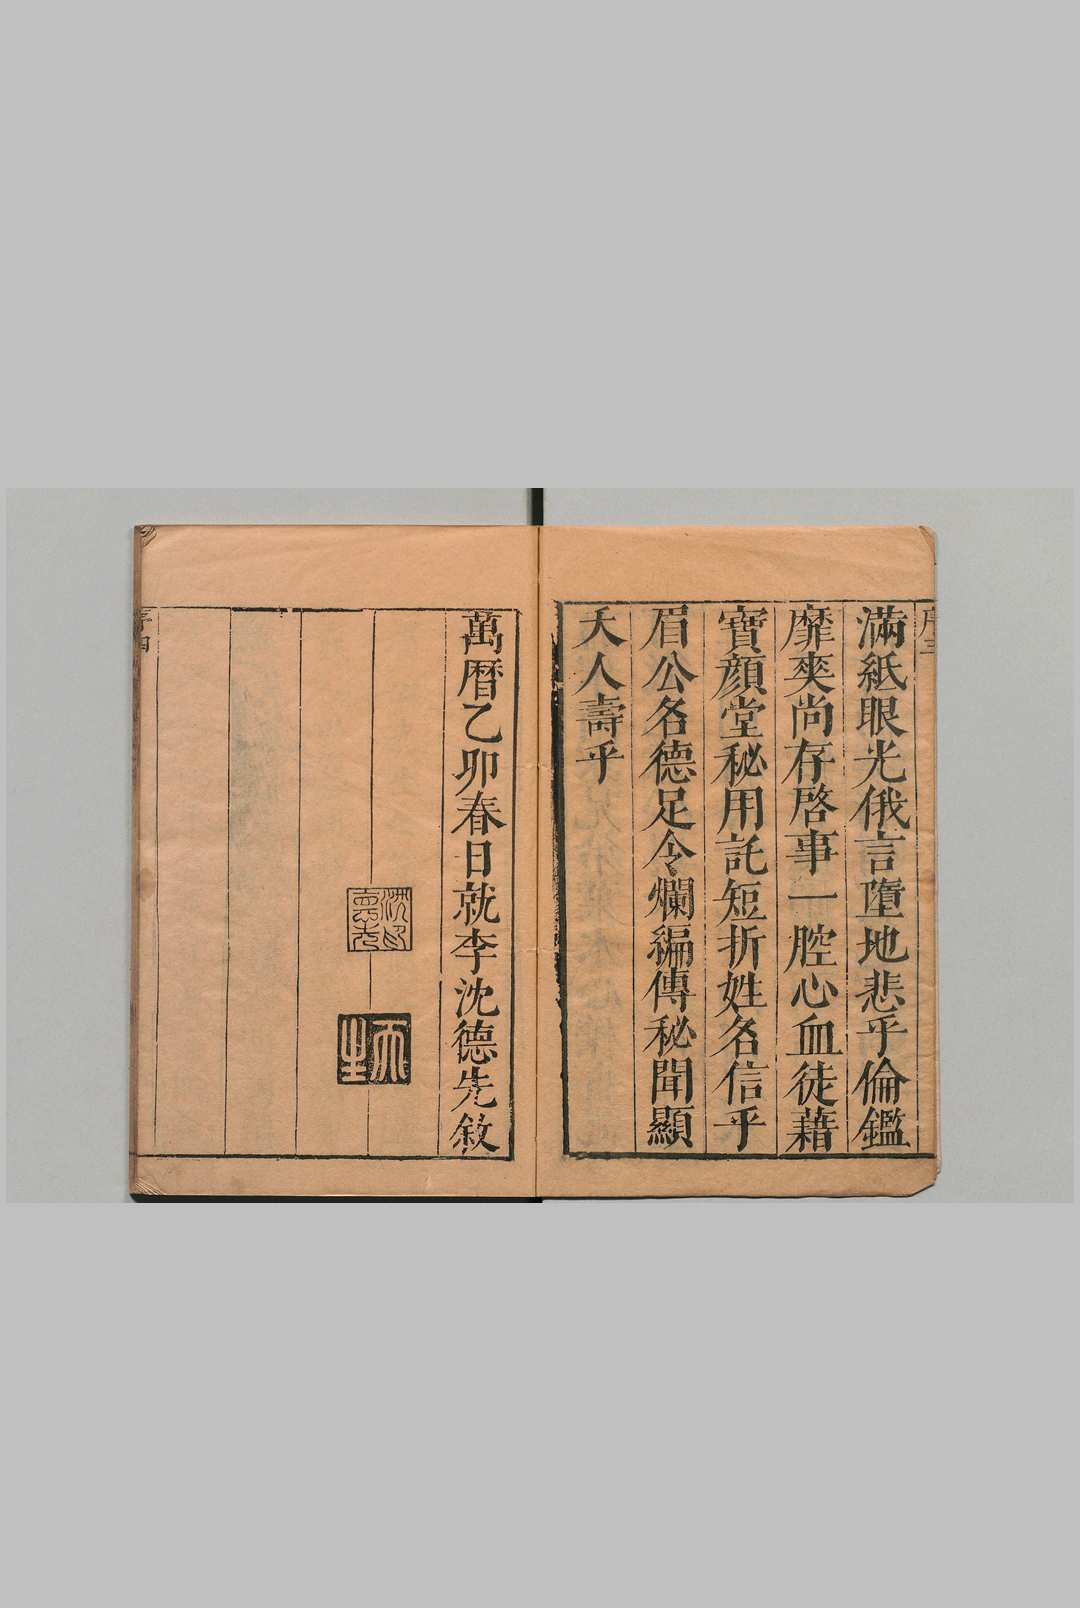 滿紙眼光俄言墮地悲乎倫鑑
靡爽尚存啓事一腔心血徒藉
寶顏堂秘用託短折姓名信乎
眉公名德足令爛編傳秘聞顯
夭人壽乎
萬曆乙卯春日就李沈德先敘
序四